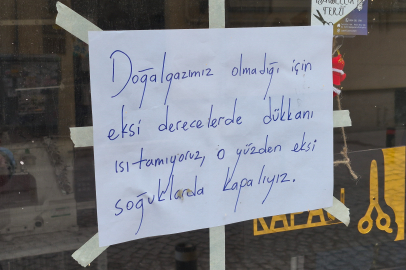 TERZİ
Doğalgazımız olmadığı için
eksi derecelerde dükkanı
ısıtamıyoruz, o yüzden eksi
soğuklarda kapalıyız.